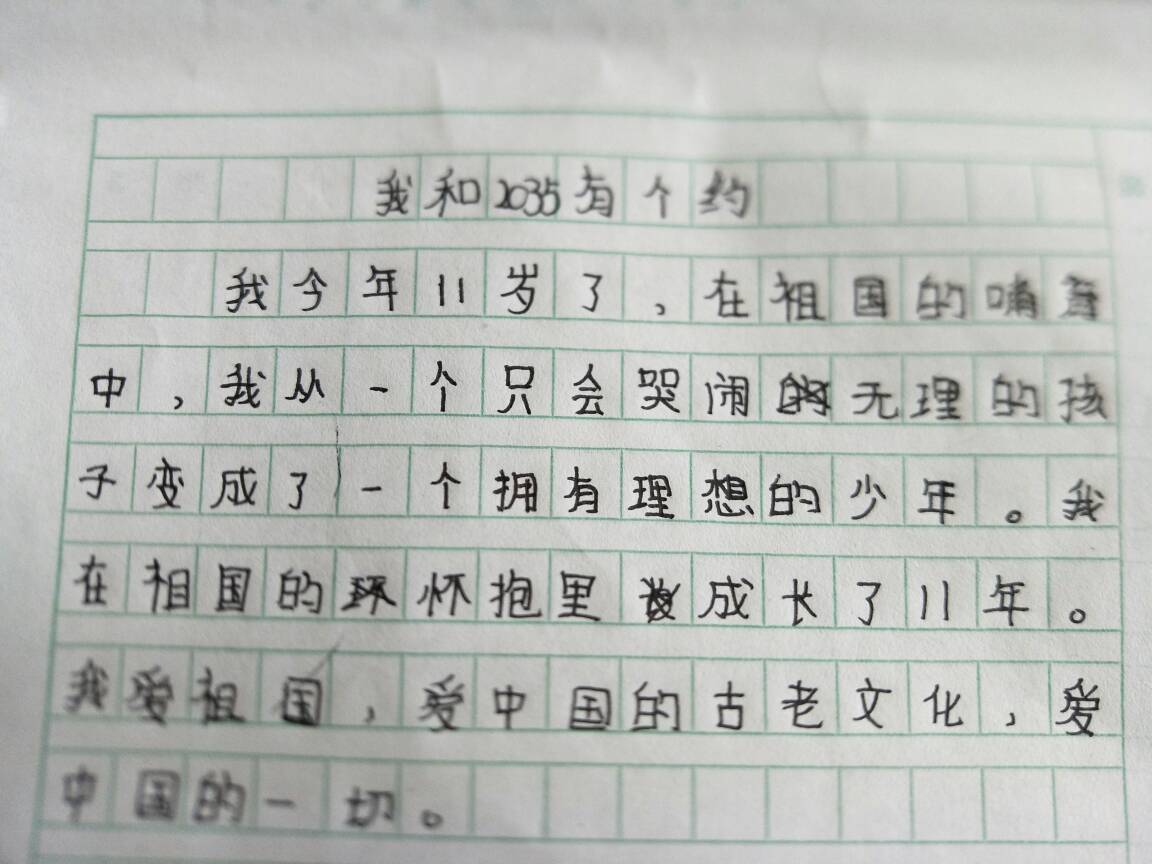 我和2035有个约
我今年11岁了，在祖国的哺育
中，我从一个只会哭闹无理的孩
子变成了一个拥有理想的少年。我
在祖国的怀抱里成长了11年。
我爱祖国，爱中国的古老文化，爱
中国的一切。